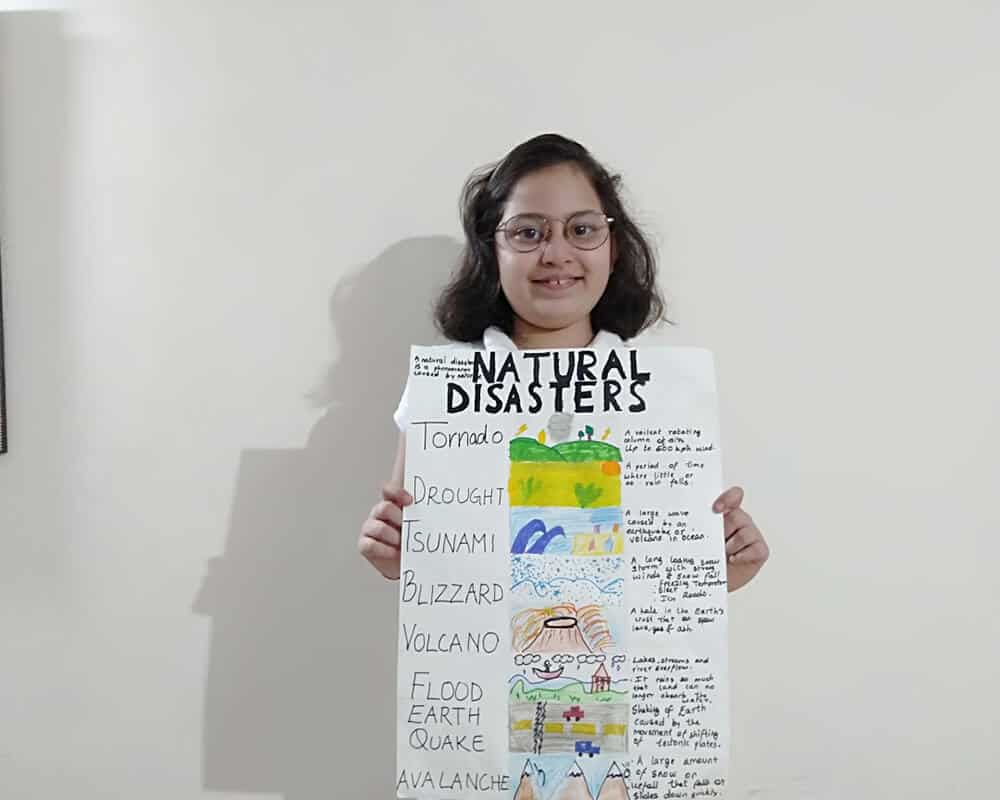 A natural disaster
is a phenomenon
caused by nature
NATURAL
DISASTERS
Tornado
A voilent rotating
column of air.
Up to 500 kph wind.
DROUGHT
A period of Time
where little or
no rain falls.
TSUNAMI
A large wave
caused by an
earthquake or
volcano in ocean.
BLIZZARD
A long lasting snow
storm with strong
winds & snow fall
Freezing Temperature
Sleet
Icy Roads.
VOLCANO
A hole in the Earth's
crust that can spew
lava, gas & ash
FLOOD
Lakes, streams and
river overflow.
It rains so much
that land can no
longer absorb the
water.
EARTH
QUAKE
Shaking of Earth
caused by the
movement of shifting
of tectonic plates.
AVALANCHE
A large amount
of snow or
that fall or
slides down quickly.